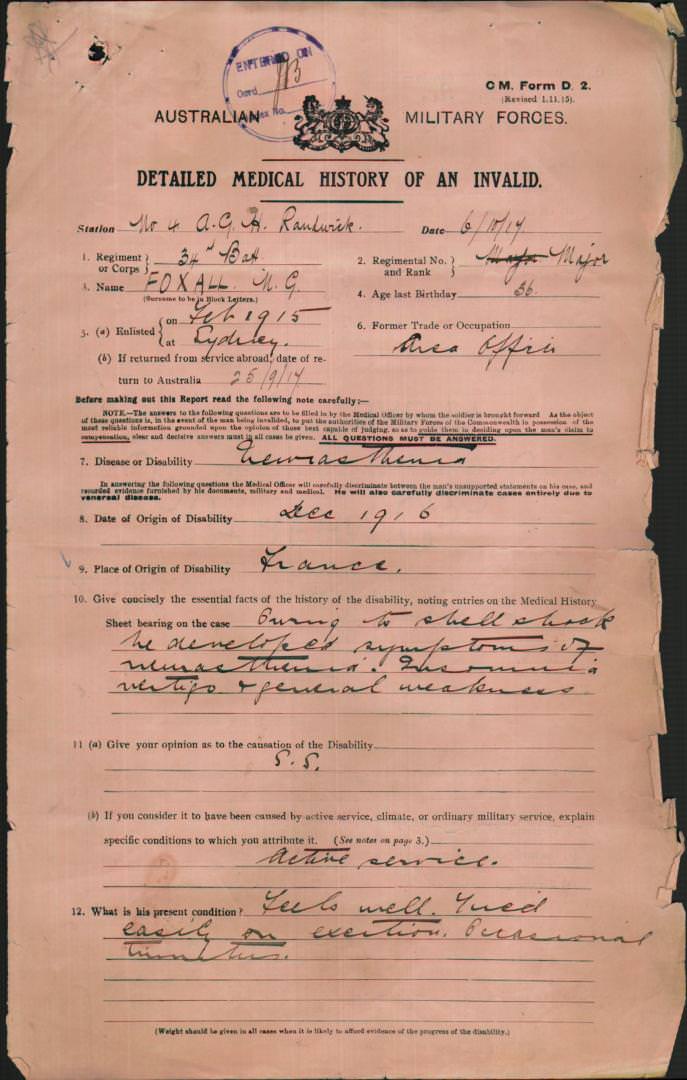 ENTERED ON
Card
Index No.
C M. Form D. 2.
(Revised 1.11.15).
AUSTRALIAN MILITARY FORCES.
DETAILED MEDICAL HISTORY OF AN INVALID.
Station No 4 A.G.H. Randwick. Date 6/10/17
1. Regiment or Corps } 34th Batt
2. Regimental No. and Rank } Major Major
3. Name FOXALL. M. G.
(Surname to be in Block Letters.)
4. Age last Birthday 36.
5. (a) Enlisted { on Feb 1915
at Sydney.
6. Former Trade or Occupation
Area Officer
(b) If returned from service abroad, date of re-
turn to Australia 25/9/17
Before making out this Report read the following note carefully:—
NOTE.—The answers to the following questions are to be filled in by the Medical Officer by whom the soldier is brought forward As the object
of these questions is, in the event of the man being invalided, to put the authorities of the Military Forces of the Commonwealth in possession of the
most reliable information grounded upon the opinion of those best capable of judging, so as to guide them in deciding upon the man's claim to
compensation, clear and decisive answers must in all cases be given. ALL QUESTIONS MUST BE ANSWERED.
7. Disease or Disability Neurasthenia
In answering the following questions the Medical Officer will carefully discriminate between the man's unsupported statements on his case, and
recorded evidence furnished by his documents, military and medical. He will also carefully discriminate cases entirely due to
venereal disease.
8. Date of Origin of Disability Dec 1916
9. Place of Origin of Disability France.
10. Give concisely the essential facts of the history of the disability, noting entries on the Medical History
Sheet bearing on the case Owing to shell shock
he developed symptoms of
neurasthenia. Insomnia
vertigo & general weakness
11 (a) Give your opinion as to the causation of the Disability
S.S.
(b) If you consider it to have been caused by active service, climate, or ordinary military service, explain
specific conditions to which you attribute it. (See notes on page 3.)
active service.
12. What is his present condition? Feels well. Tired
easily on exertion. Occasional
tinnitus.
(Weight should be given in all cases when it is likely to afford evidence of the progress of the disability.)